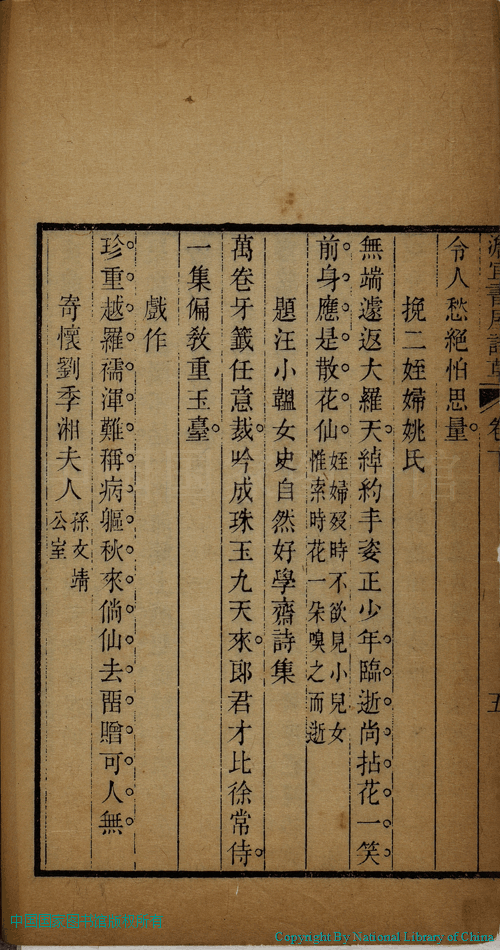 令人愁絕怕思量
挽二姪婦姚氏
無端遽返大羅天綽約丰姿正少年臨逝尚拈花一笑
前身應是散花仙姪婦歿時不欲見小兒女
惟索時花一朵嗅之而逝
題汪小韞女史自然好學齋詩集
萬卷牙籤任意裁吟成珠玉九天來郎君才比徐常侍
一集偏教重玉臺
戲作
珍重越羅襦渾難稱病軀秋來倘仙去留贈可人無
寄懷劉季湘夫人孫文靖
公室
Copyright By National Library of China